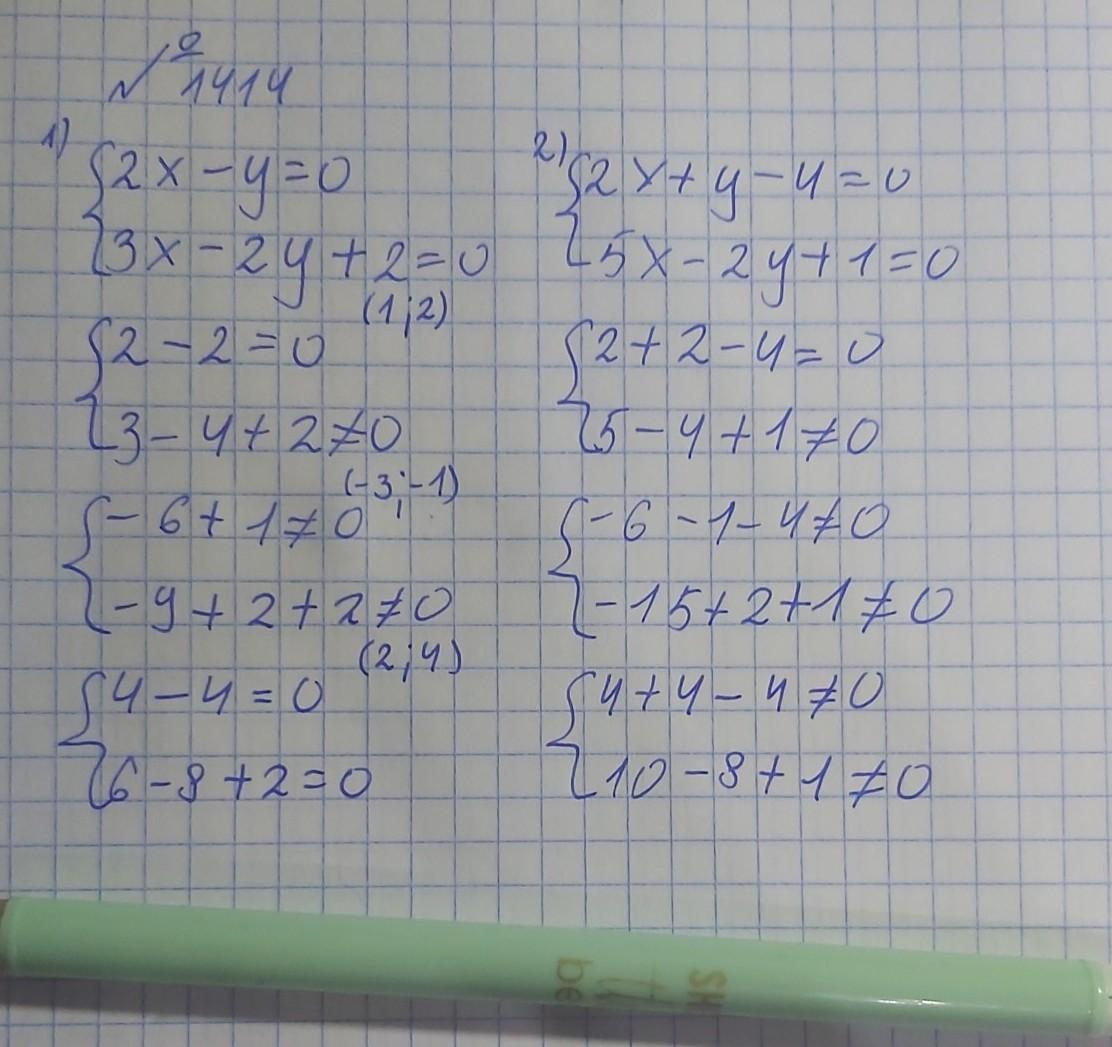 № 1414
1) {2x-y=0
{3x-2y+2=0
(1;2)
{2-2=0
{3-4+2≠0
(-3;-1)
{-6+1≠0
{-9+2+2≠0
(2;4)
{4-4=0
{6-8+2=0
2) {2x+y-4=0
{5x-2y+1=0
{2+2-4=0
{5-4+1≠0
{-6-1-4≠0
{-15+2+1≠0
{4+4-4≠0
{10-8+1≠0